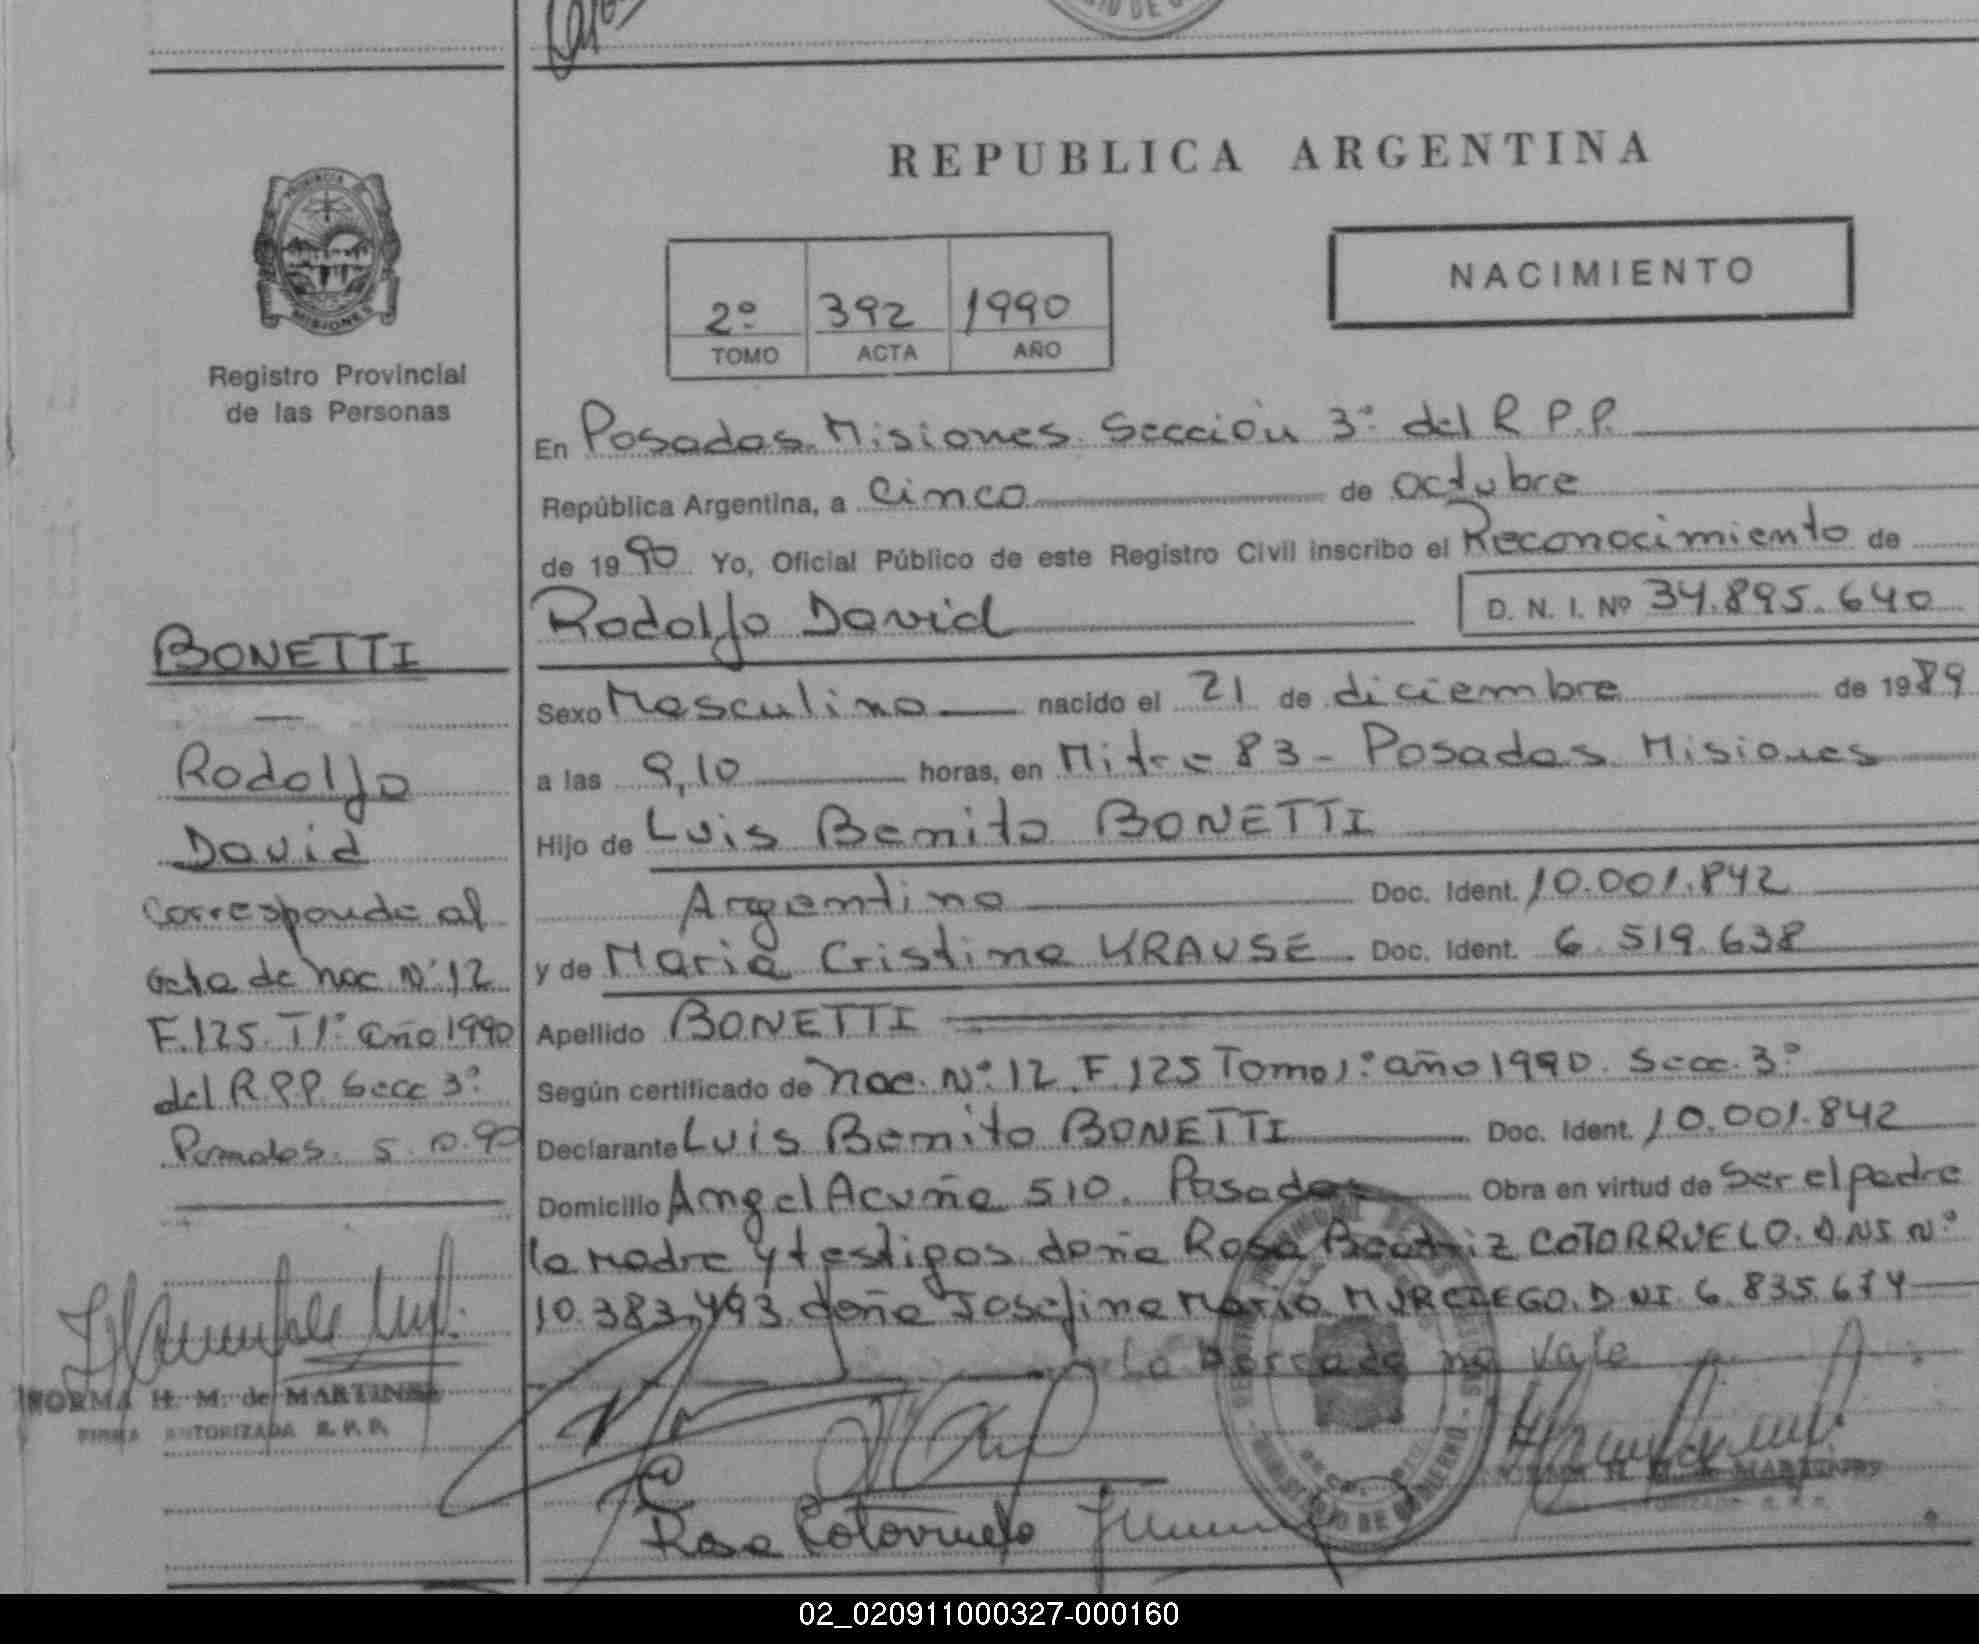 REPUBLICA ARGENTINA
NACIMIENTO
2º 392 1990
TOMO ACTA AÑO
PROVINCIA
MISIONES
Registro Provincial
de las Personas
BONETTI
Rodolfo
David
Corresponde al
acta de nac. Nº 12
F. 125. T 1º año 1990
del R.P.P. Secc 3º
Posadas. 5.10.90
NORMA H. M. de MARTINEZ
FIRMA AUTORIZADA R. P. P.
En Posadas. Misiones. Sección 3º del R.P.P.
República Argentina, a cinco de octubre
de 1990 Yo, Oficial Público de este Registro Civil inscribo el Reconocimiento de
Rodolfo David D. N. I. Nº 34.895.640
Sexo Masculino nacido el 21 de diciembre de 1989
a las 9,10 horas, en Mitre 83 - Posadas Misiones
Hijo de Luis Benito BONETTI
Argentino Doc. Ident. 10.001.842
y de Maria Cristina KRAUSE Doc. Ident. 6.519.638
Apellido BONETTI
Según certificado de nac. Nº 12. F. 125 Tomo 1º año 1990. Secc. 3º
Declarante Luis Benito BONETTI Doc. Ident. 10.001.842
Domicilio Angel Acuña 510. Posadas Obra en virtud de Ser el padre
la madre y testigos doña Rosa Beatriz COTORRUELO. DNI Nº
10.383.493 doña Josefina Maria MURCIEGO. DNI 6.835.674
Lo borrado no vale
Rosa Cotorruelo
MINISTERIO DE GOBIERNO
02_020911000327-000160